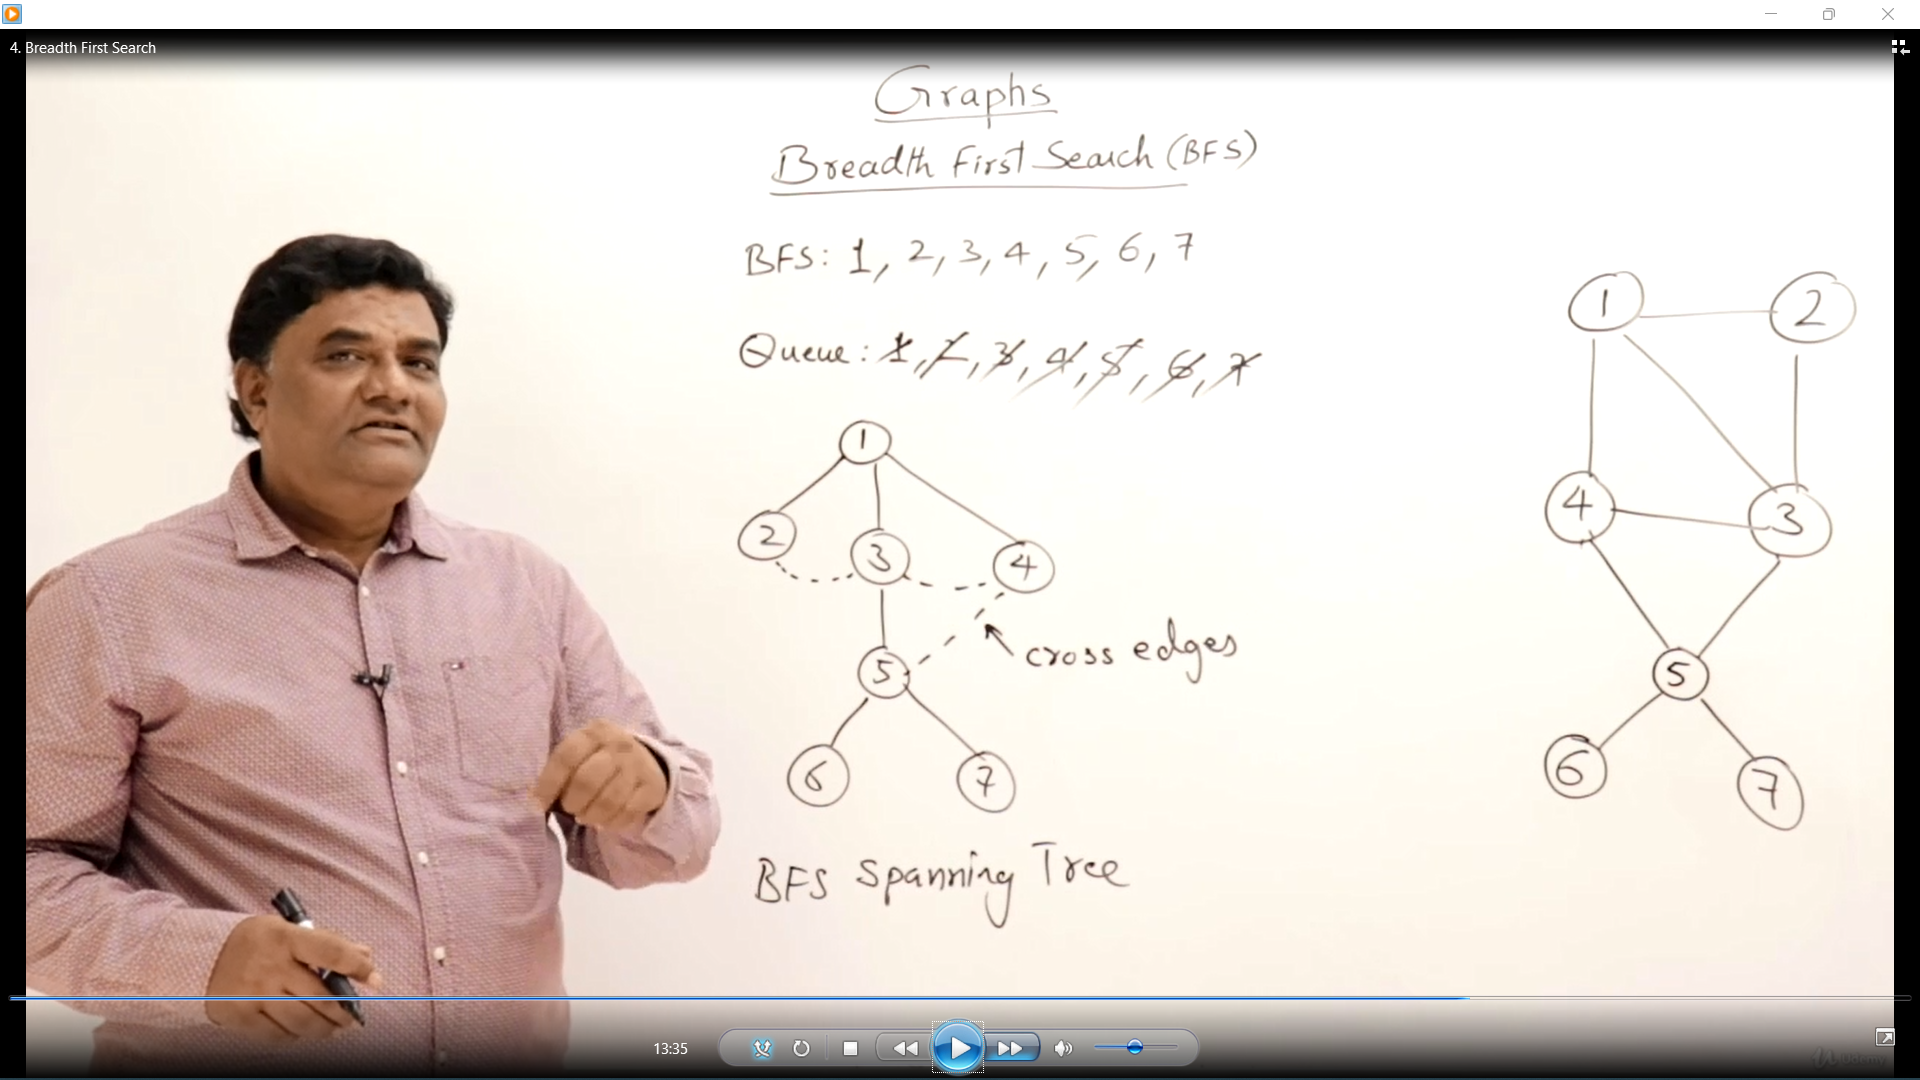 4. Breadth First Search
Graphs
Breadth First Search (BFS)
BFS: 1, 2, 3, 4, 5, 6, 7
Queue: 1, 2, 3, 4, 5, 6, 7
1
2 3 4
cross edges
5
6 7
BFS Spanning Tree
1 2
4 3
5
6 7
13:35
Udemy